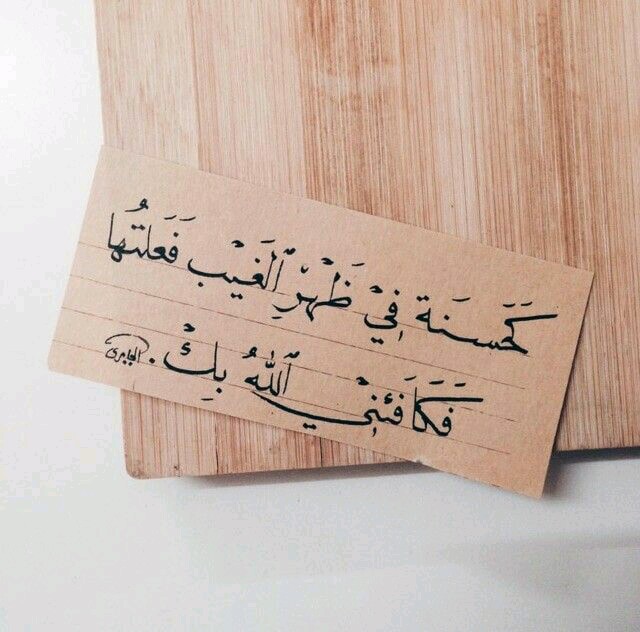 كَحَسنَة فِيْ ظَهْرِ ٱلْغَيْب فَعَلتُها
فَكَافَئنِيْ ٱللهُ بِكْ .
الجابري